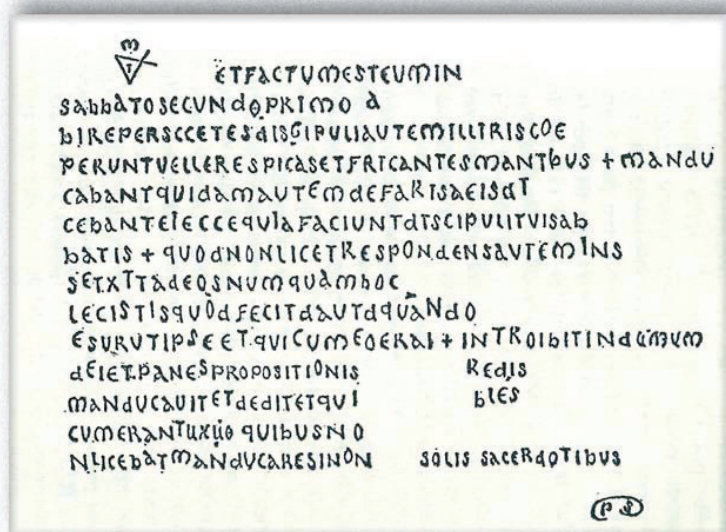 ETFACTUMESTEUMIN
SABBATOSECUNDOPRIMO A
BIREPERSCCETESDISGIPULIAUTEMILLITRISCOE
PERUNTUELLERESPICASETFRICANTESMANTBUS + MANDU
CABANTQUIDAMAUTEMDEFARISAEISDT
CEBANTEIECCEQUIAFACIUNTDTSCIPULITUISAB
BATIS + QUODNONLICETRESPONDENSAUTEMINS
SETXTTADEOSNUMQUAMHOC
LECISTISQUODFECITDAUTDQUANDO
ESURUTIPSEETQUICUMEOERAI + INTROIBITINDUMUM
DEIETPANESPROPOSITIONIS REDIS
MANDUCAUITETDEDITETQUI BLES
QUIBUSNO
NLICEBATMANDUCARESINON SOLIS SACERDOTIBUS
PS